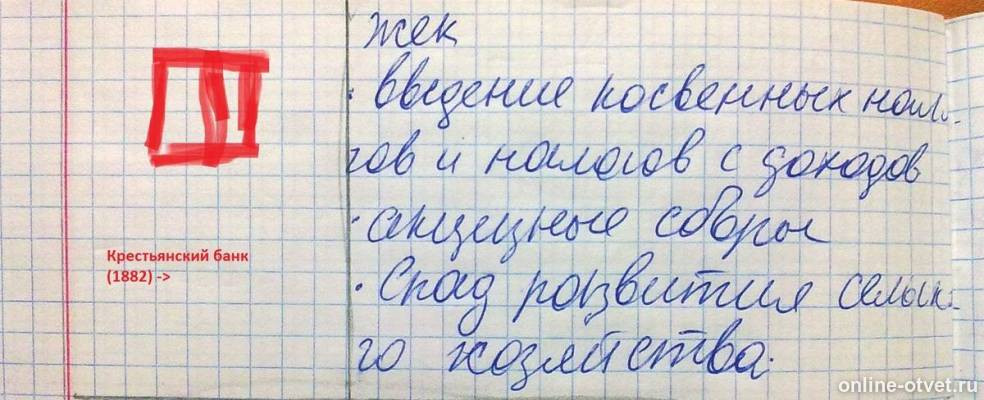 жек
Крестьянский банк
(1882) ->
· введение косвенных нало-
гов и налогов с доходов
· акцизные сборы
· Спад развития сельск-
го хозяйства.
online-otvet.ru